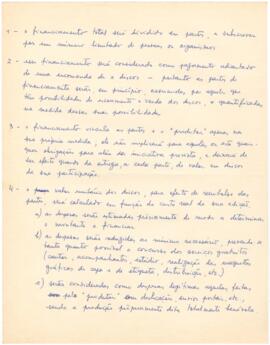 1 - o financiamento total será dividido em partes, a subscrever
por um número limitado de pessoas ou organismos
2 - esse financiamento será considerado como pagamento adiantado
de uma encomenda de x discos - portanto as partes do
financiamento serão, em princípio, assumidas por aqueles que
têm possibilidades de escoamento e venda dos discos, e quantificadas
na medida dessa sua possibilidade.
3 - o financiamento visa as partes e a "produtora" apenas, na
sua própria medida, ele não implicará para aqueles, ou uns quais-
quer obrigação para além da iniciativa prevista, e deixará de
ter efeito quando da entrega, a cada parte, do valor em discos
da sua participação.
4 - o valor unitário dos discos, para efeito de reembolso das
partes, será calculado em função do custo real da sua edição.
a) as despesas serão estimadas previamente de modo a determinar
o montante a financiar
b) as despesas serão reduzidas ao mínimo necessário, procurando-se
tanto quanto possível o concurso dos serviços gratuitos
(cantores, acompanhantes, estúdio, realização de maquetas
gráficas de capa e de etiqueta, distribuição, etc.)
c) serão consideradas como despesas legítimas aquelas feitas
pela "produtora" em deslocações, envios postais, etc.,
sendo a produção propriamente dita totalmente benévola